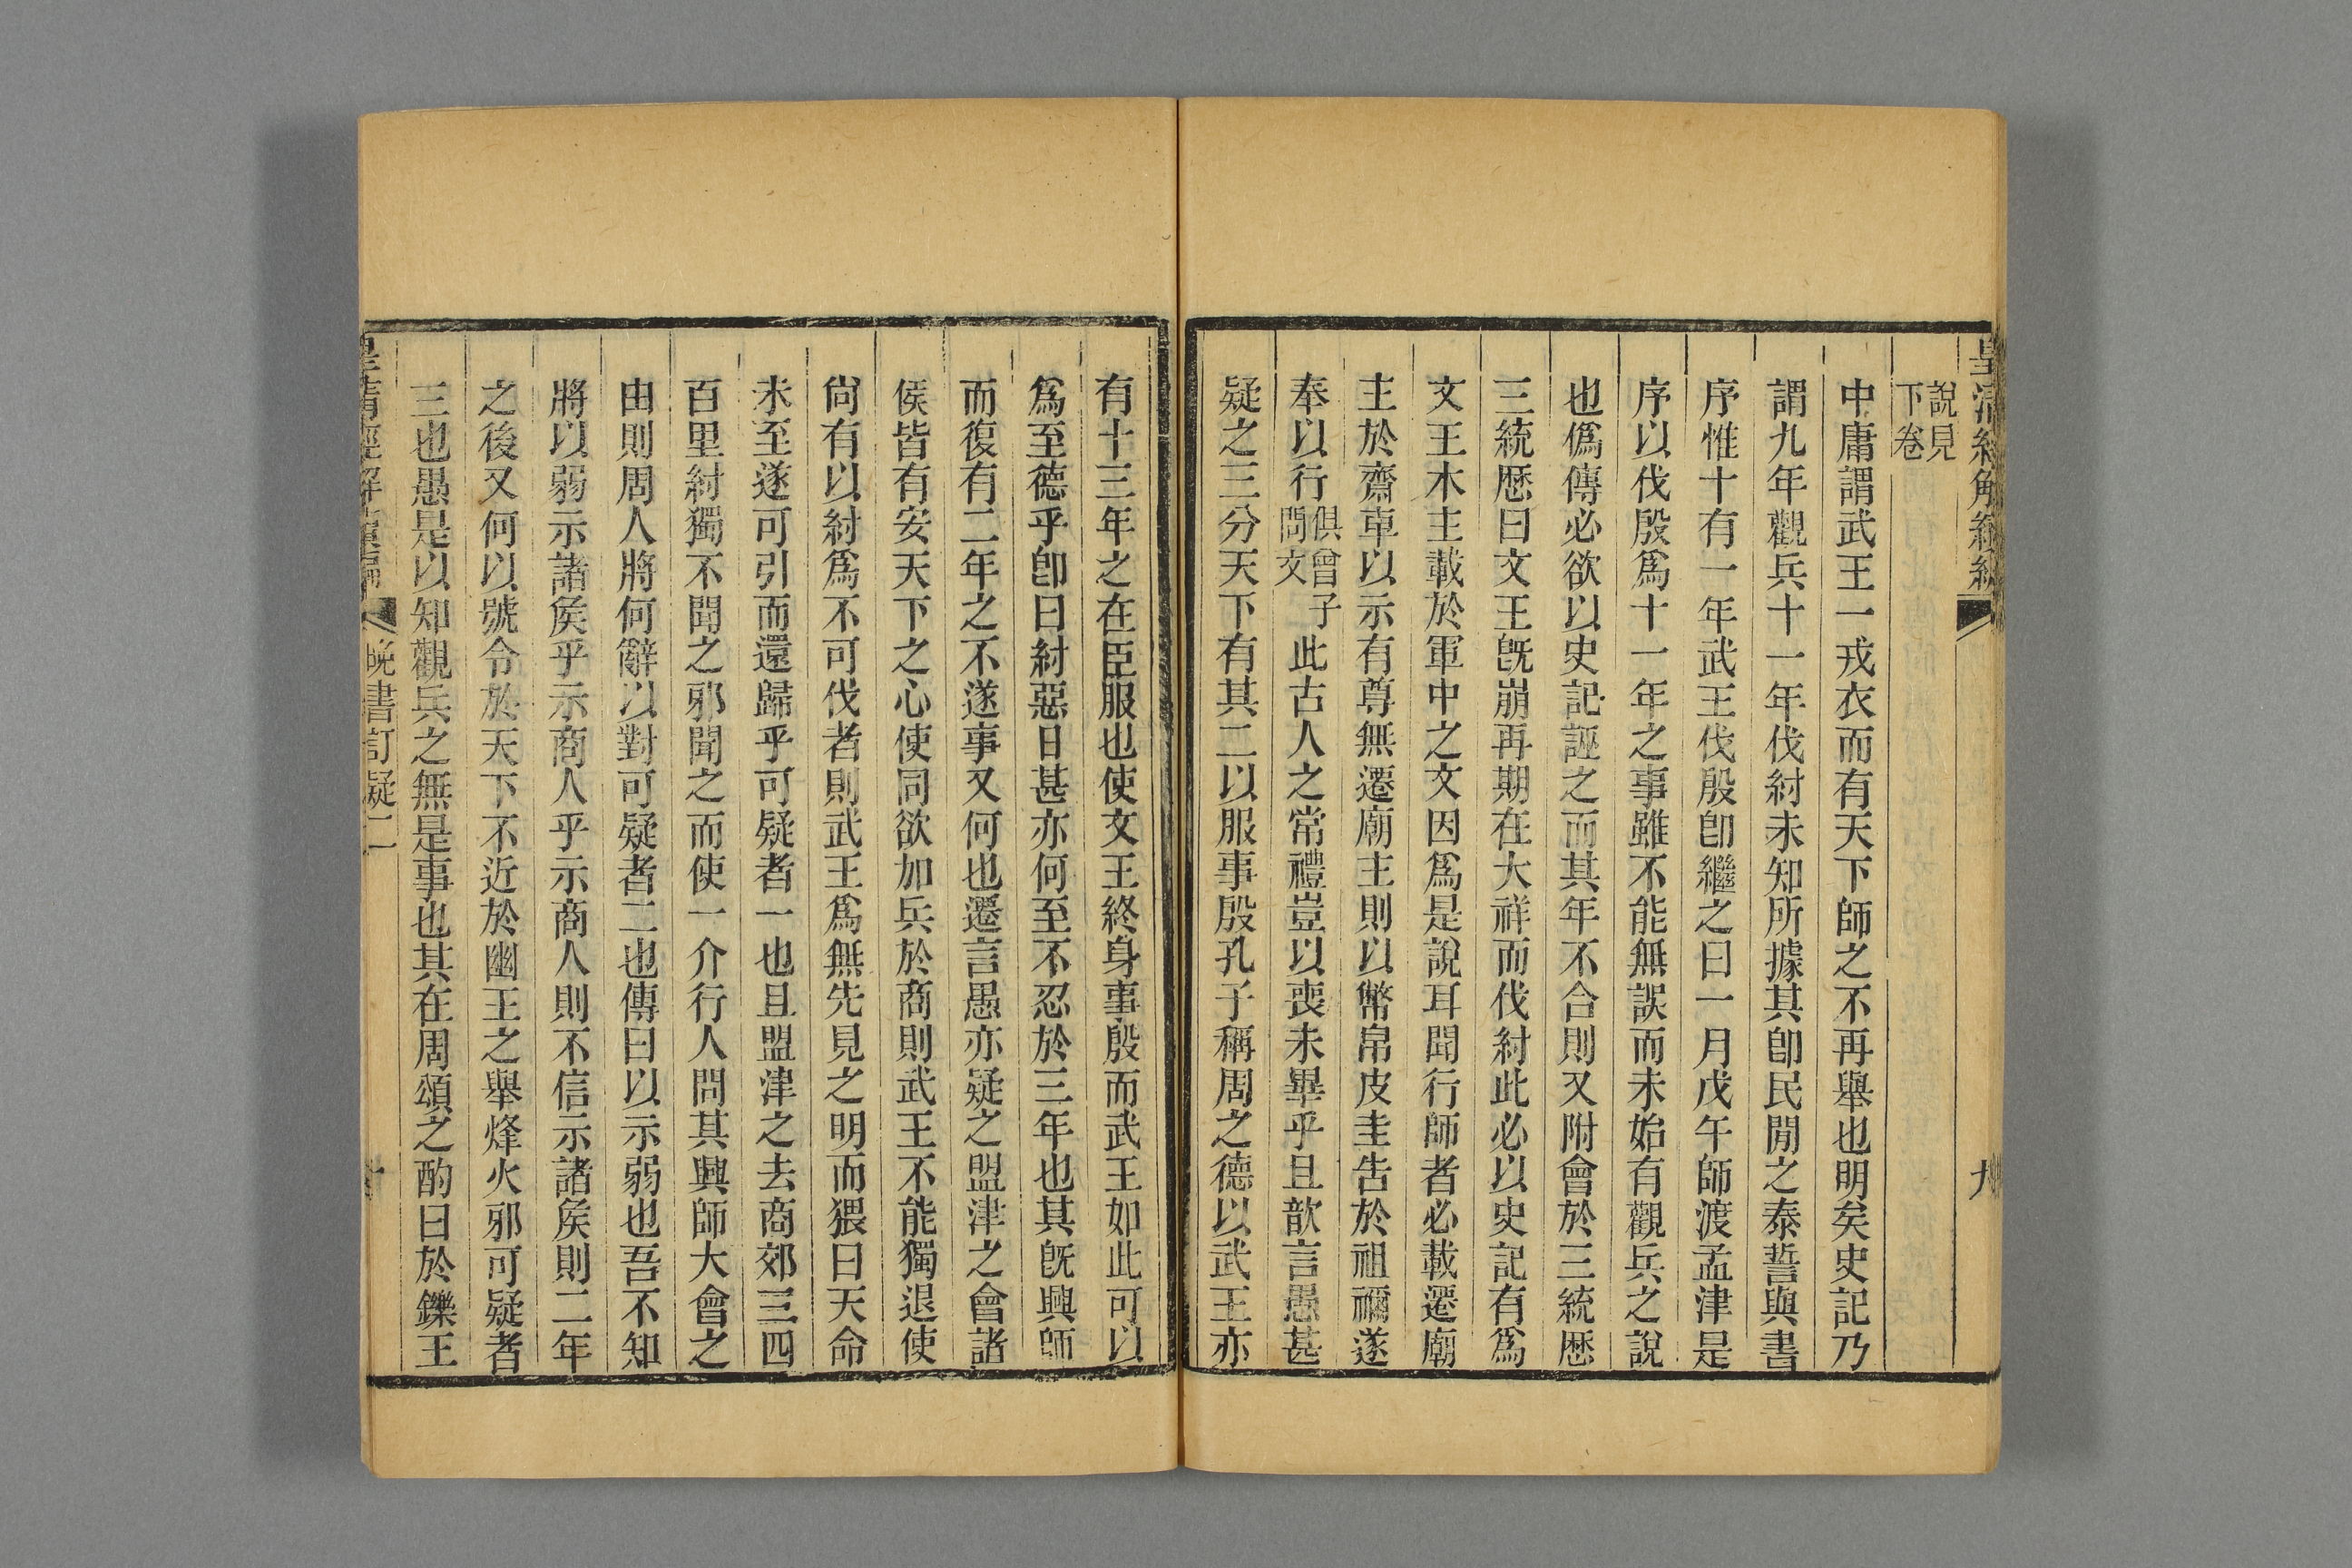 說見
下卷
中庸謂武王一戎衣而有天下師之不再舉也明矣史記乃
謂九年觀兵十一年伐紂未知所據其卽民閒之泰誓與書
序惟十有一年武王伐殷卽繼之曰一月戊午師渡孟津是
序以伐殷爲十一年之事雖不能無誤而未始有觀兵之說
也僞傳必欲以史記誣之而其年不合則又附會於三統歷
三統歷曰文王旣崩再期在大祥而伐紂此必以史記有爲
文王木主載於軍中之文因爲是說耳聞行師者必載遷廟
主於齋車以示有尊無遷廟主則以幣帛皮圭告於祖禰遂
奉以行俱曾子問文此古人之常禮豈以喪未畢乎且歆言愚甚
疑之三分天下有其二以服事殷孔子稱周之德以武王亦
有十三年之在臣服也使文王終身事殷而武王如此可以
爲至德乎卽曰紂惡日甚亦何至不忍於三年也其旣興師
而復有二年之不遂事又何也遷言愚亦疑之盟津之會諸
侯皆有安天下之心使同欲加兵於商則武王不能獨退使
尙有以紂爲不可伐者則武王爲無先見之明而猥曰天命
未至遂可引而還歸乎可疑者一也且盟津之去商郊三四
百里紂獨不聞之邪聞之而使一介行人問其興師大會之
由則周人將何辭以對可疑者二也傳曰以示弱也吾不知
將以弱示諸矦乎示商人乎示商人則不信示諸矦則二年
之後又何以號令於天下不近於幽王之舉烽火邪可疑者
三也愚是以知觀兵之無是事也其在周頌之酌曰於鑠王
皇清經解續編
晚書訂疑二
十